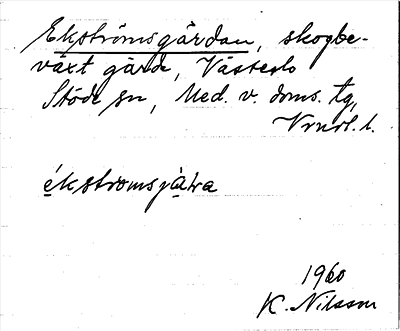 Ekströmsgärdan, skogbe-
växt gärde, Västerlo
Stöde sn, Med. v. doms. tg,
Vrnrl. l.
ékstromsjàḷra
1960
K. Nilsson